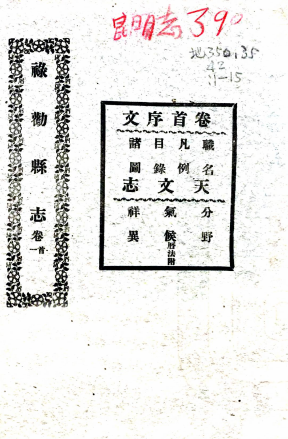 昆明志390
地350.35
42
11-15
卷首序文
職名
凡例
目錄
諸圖
天文志
分野
氣候曆法附
祥異
祿勸縣志 卷首一